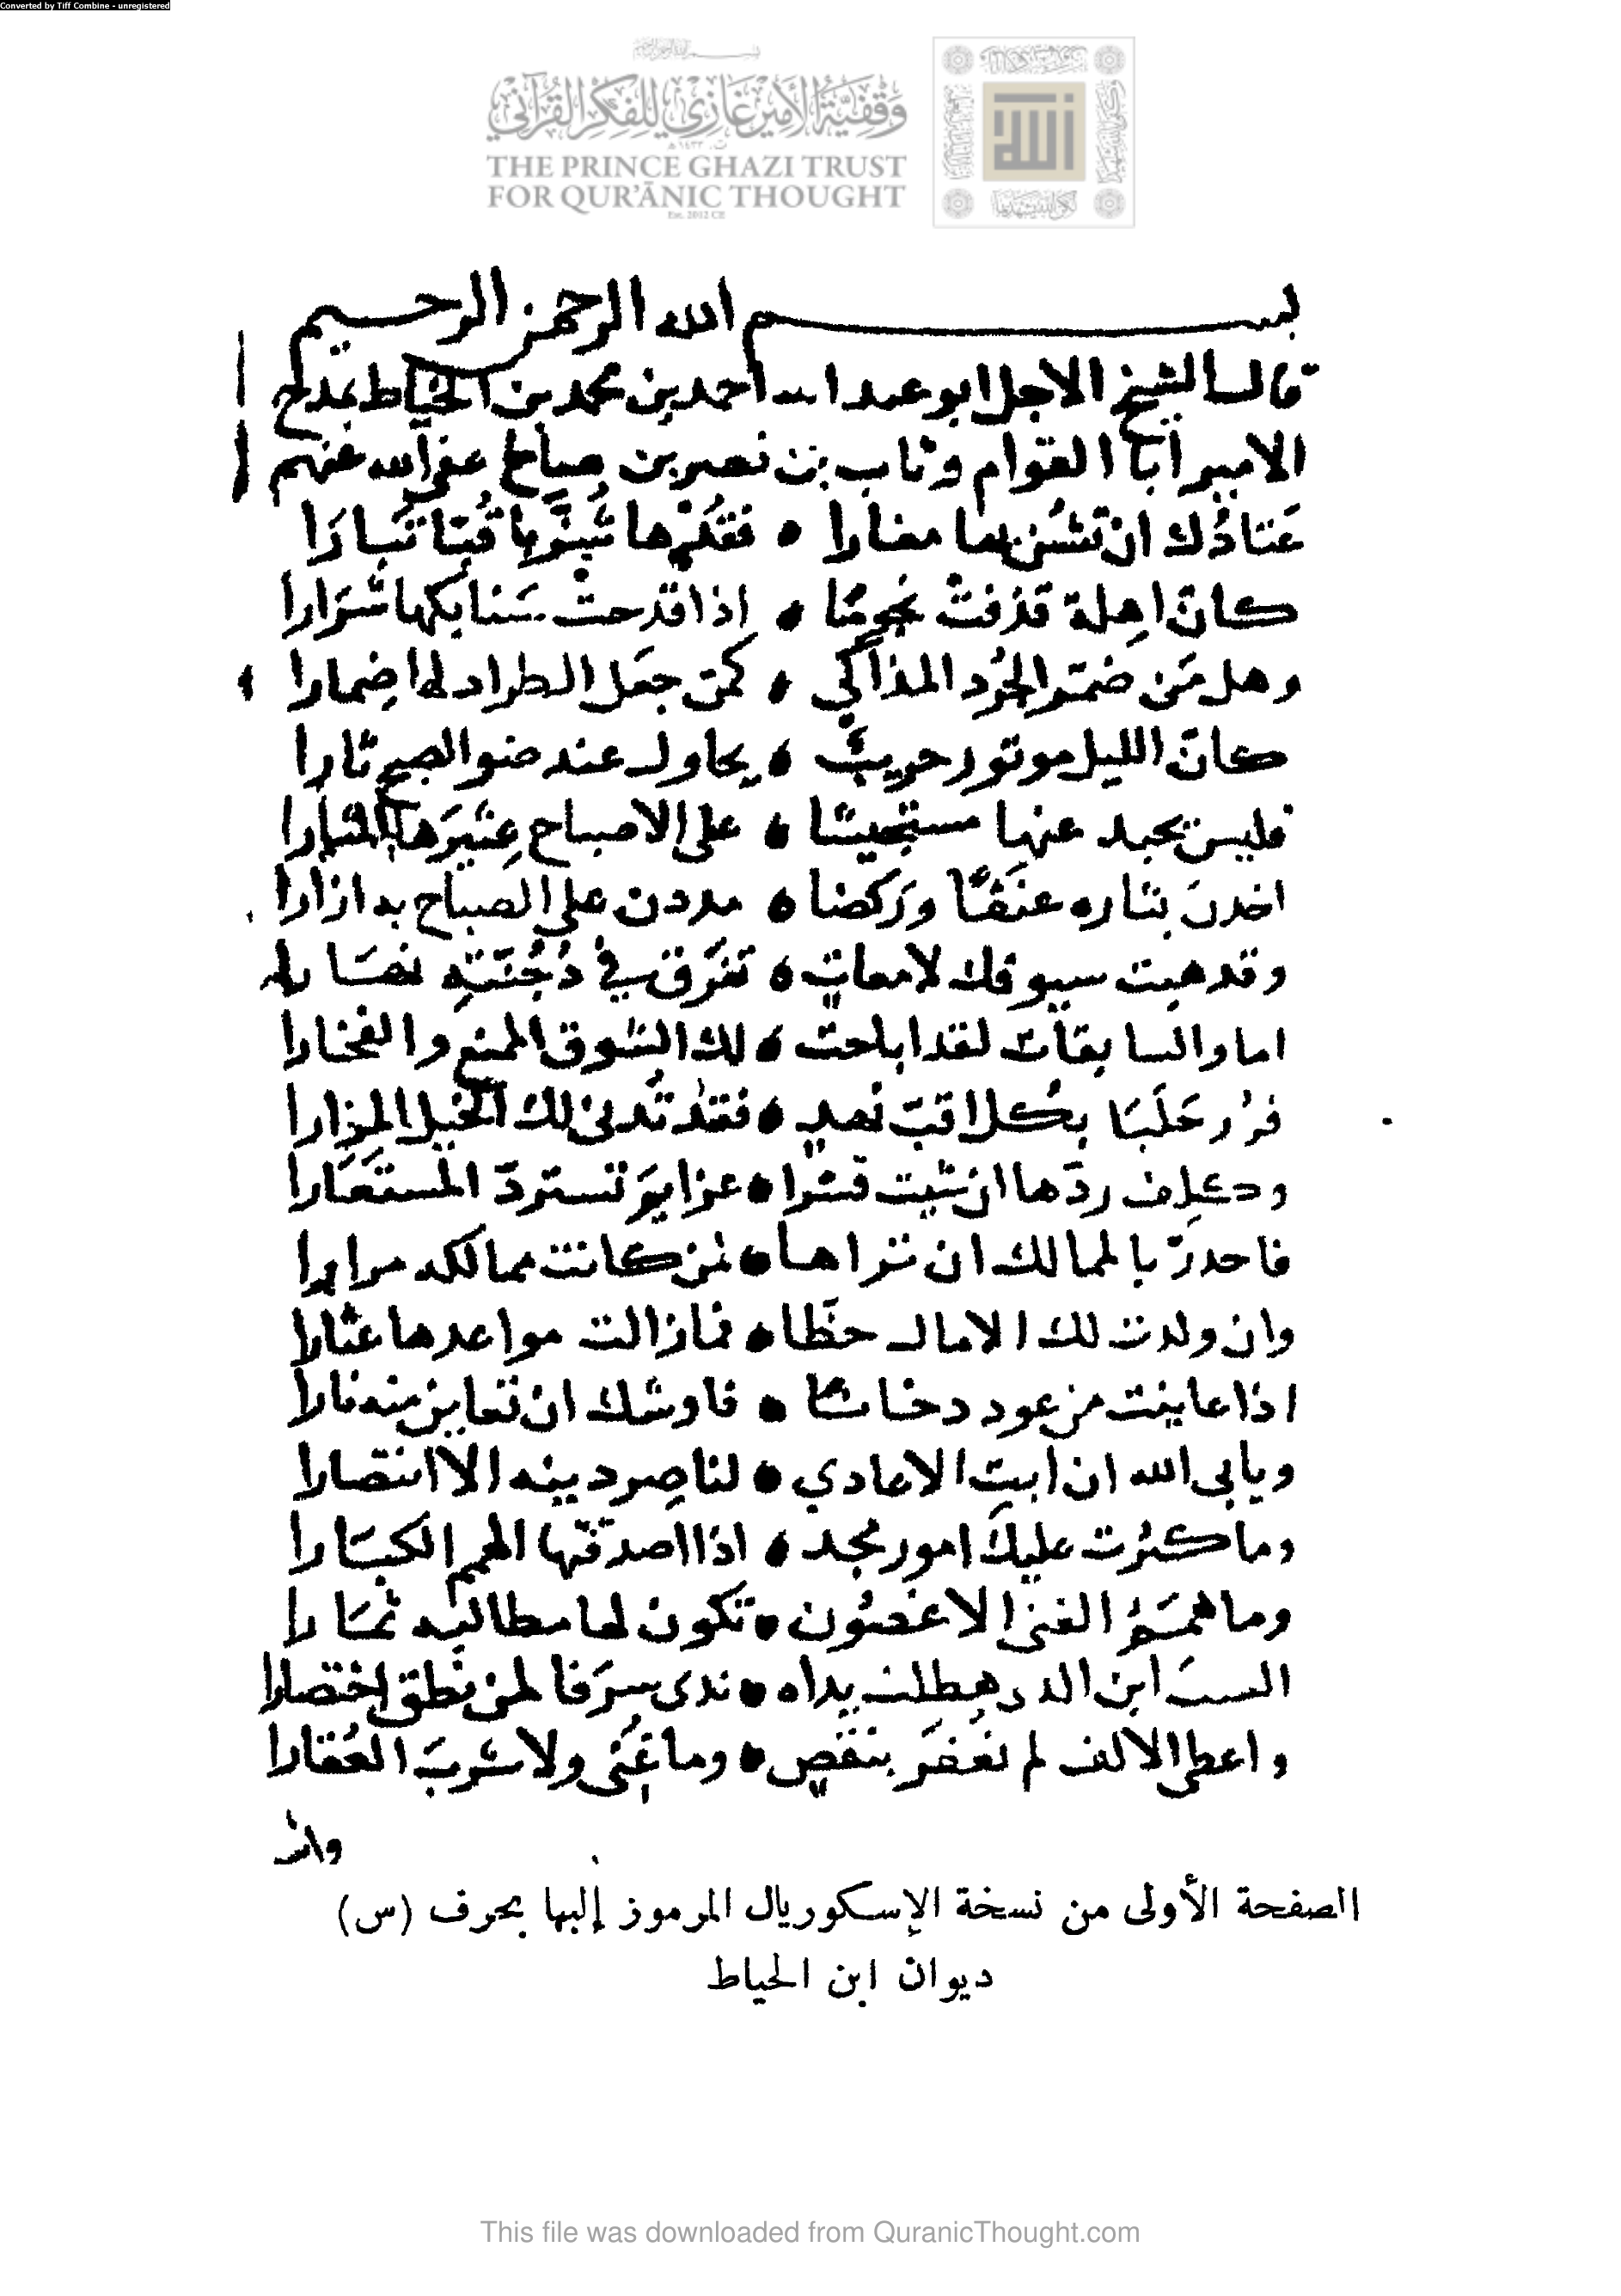 Converted by Tiff Combine - unregistered
وقفية الأمير غازي للفكر القرآني
THE PRINCE GHAZI TRUST
FOR QUR'ĀNIC THOUGHT
Est. 2012 CE
بسم الله الرحمن الرحيم
قال الشيخ الاجل ابو عبد الله احمد بن محمد بن الخياط يمدح
الامير أبا القوام وثاب بن نصر بن صباح عفى الله عنهم
عَتادُك ان تشُن بها مغارا ه فقُدْها شُزَّبا قُبّا تَبارَا
كانّ اهلة قذفتْ نجومًا ه اذا قدحتْ سَنابكها شَرَارا
وهل مَن ضمّر الجُرد المذاكي ه كمن جعَل الطراد لها ضِمارا
كانّ الليل موتور حريبٌ ه يحاول عند ضو الصبح ثارا
فليس يحيد عنها مستجيشا ه على الاصباح عِثيَرَها المثارا
اخذنَ بثاره عنَقًا وركضا ه مددن على الصباح به ازارا
وقد هبت سيوفك لامعاتٍ ه تفَرّق في دُجُنّتِهِ نهَارا
اما والسابقات لقد اباحت ه لك الشوق الممنع والفخارا
فزُر حَلَبًا بكل اقبّ نهدٍ ه فقد تُدني لك الخيل المزارا
وكلف ردّها ان شيت قسْرا ه عزايم تستردّ المستعَارا
فاجدرّ بالممالك ان تراها ه لمن كانت ممالكه مرارا
وان ولدت لك الامال حظّا ه فما زالت مواعدها عشارا
اذا عاينت من عود دخانًا ه فاوشك ان تعاين منه نارا
ويابى الله ان ابتِ الاعادي ه لناصِر دينه الا انتصارا
وما كبُرت عليكَ امور مجد ه اذا اصدقتها الهمم الكبَارا
وما همَمُ الفتى الا غصُون ه تكون لها مطالبه ثمَارا
الستَ ابن الذي هطلت يداه ه ندى سرَفا لمن نطق اختصارا
واعطى الالف لم تعقرَ بنقصٍ ه وما غُنّى ولا شربَ العُقارا
وان
الصفحة الأولى من نسخة الإسكوريال المرموز إليها بحرف (س)
ديوان ابن الحياط
This file was downloaded from QuranicThought.com